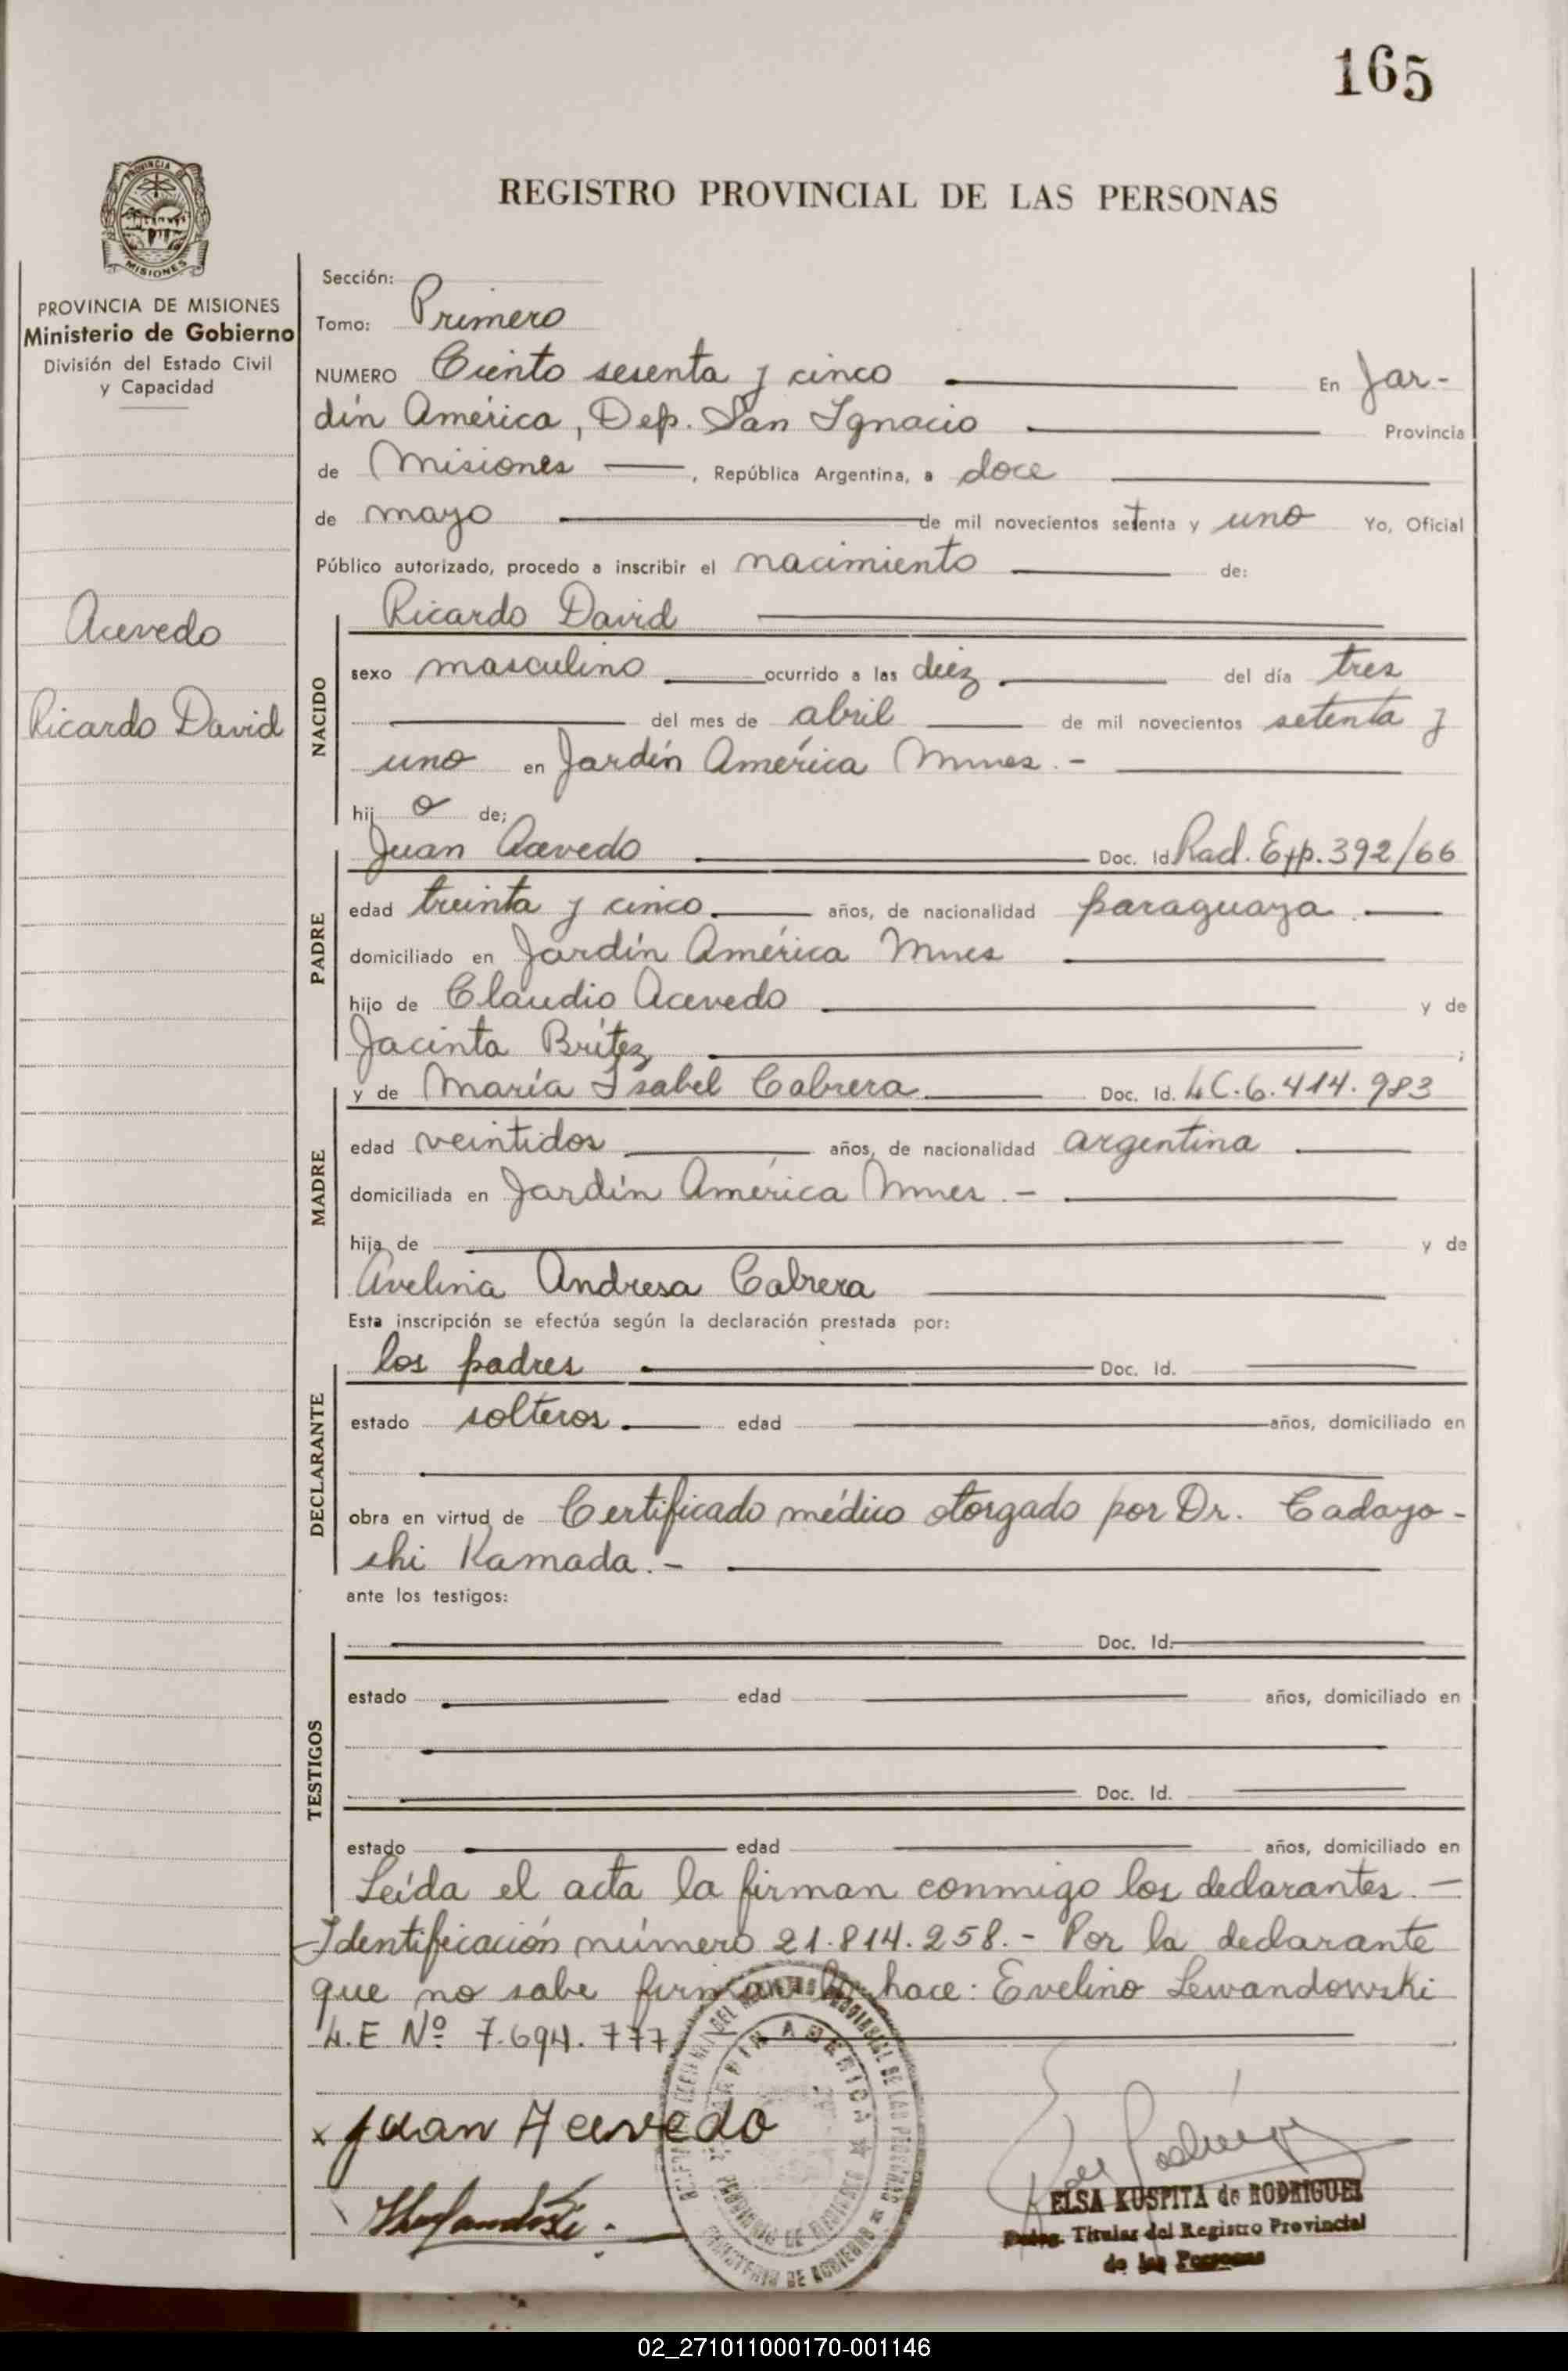 165
PROVINCIA DE
MISIONES
REGISTRO PROVINCIAL DE LAS PERSONAS
PROVINCIA DE MISIONES
Ministerio de Gobierno
División del Estado Civil
y Capacidad
Acevedo
Ricardo David
Sección:
Tomo: Primero
NUMERO Ciento sesenta y cinco En Jar-
dín América, Dep. San Ignacio Provincia
de Misiones, República Argentina, a doce
de mayo de mil novecientos setenta y uno Yo, Oficial
Público autorizado, procedo a inscribir el nacimiento de:
NACIDO
Ricardo David
sexo masculino ocurrido a las diez del día tres
del mes de abril de mil novecientos setenta y
uno en Jardín América Mnes.-
hijo de;
PADRE
Juan Acevedo Doc. Id Rad. Exp. 392/66
edad treinta y cinco años, de nacionalidad paraguaya
domiciliado en Jardín América Mnes
hijo de Claudio Acevedo y de
Jacinta Brítez ;
MADRE
y de María Isabel Cabrera Doc. Id. LC. 6.414.983
edad veintidos años, de nacionalidad argentina
domiciliada en Jardín América Mnes.-
hija de y de
Avelina Andresa Cabrera
Esta inscripción se efectúa según la declaración prestada por:
DECLARANTE
los padres Doc. Id.
estado solteros. edad años, domiciliado en
obra en virtud de Certificado médico otorgado por Dr. Tadayo-
shi Kamada.-
ante los testigos:
TESTIGOS
Doc. Id.
estado edad años, domiciliado en
Doc. Id.
estado edad años, domiciliado en
Leída el acta la firman conmigo los declarantes.-
Identificación número 21.814.258.- Por la declarante
que no sabe firmar lo hace: Evelino Lewandowski
L.E Nº 7.694.777
x Juan Acevedo
JARDIN AMERICA
PROVINCIA DE MISIONES
MINISTERIO DE GOBIERNO
ELSA KUSPITA de RODRIGUEZ
Deleg. Titular del Registro Provincial
de las Personas
02_271011000170-001146